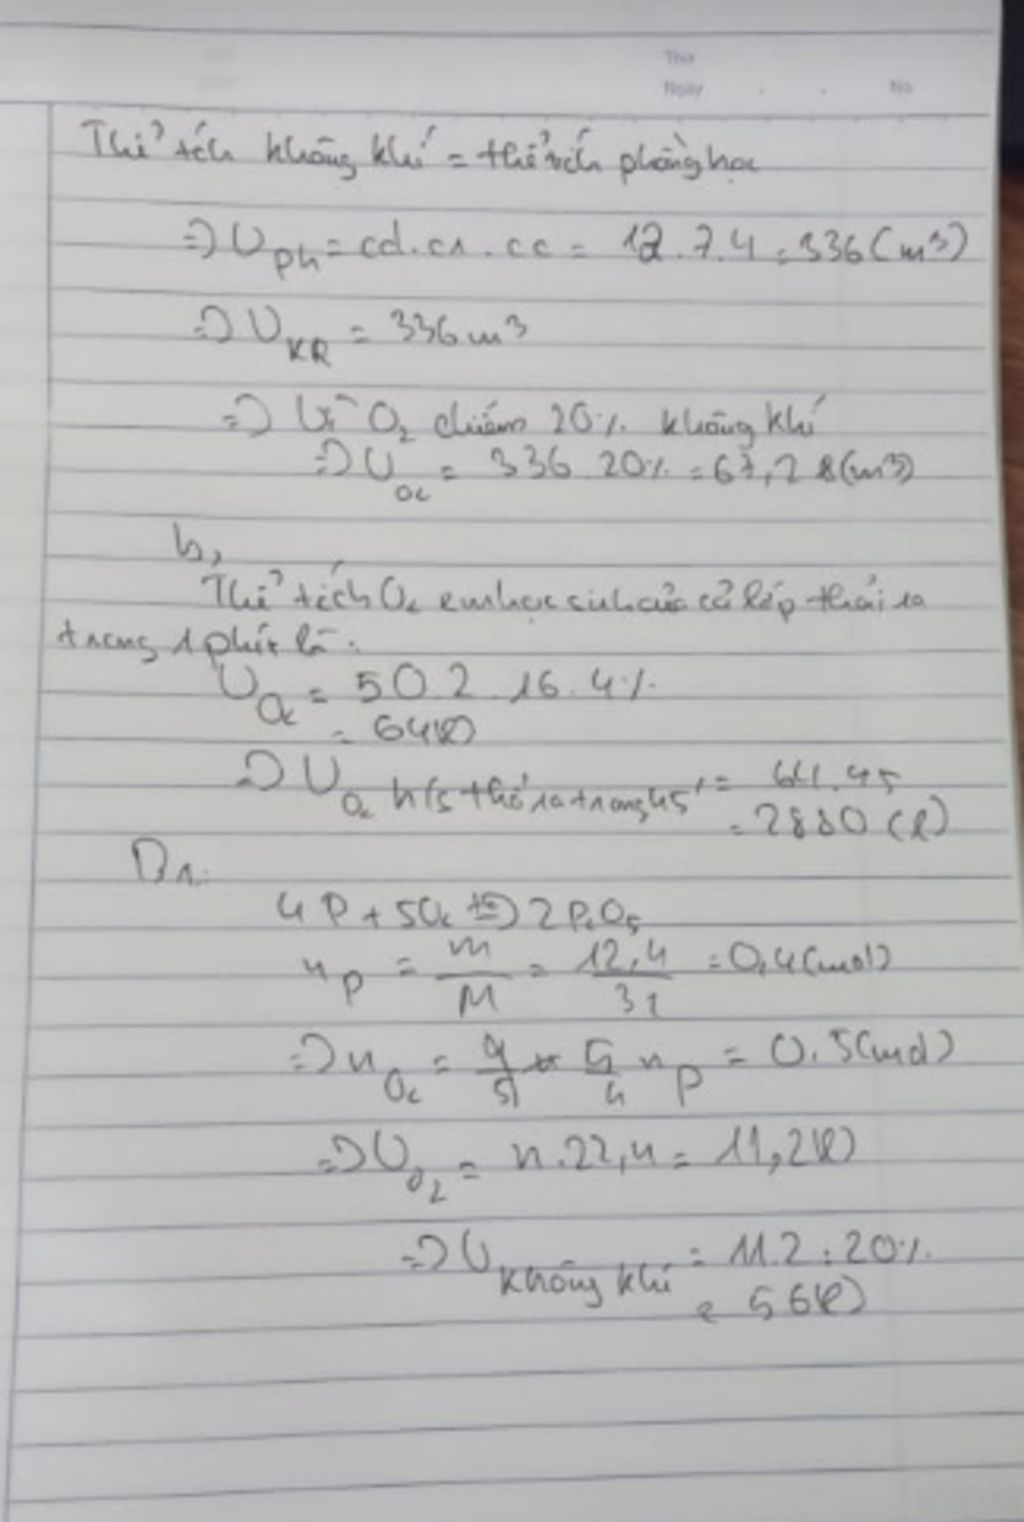 Thứ
Ngày . . No
Thể tích không khí = thể tích phòng học
=> V ph = cd.cr.cc = 12.7.4 = 336 (m³)
=> V KK = 336 m³
=> Vì O₂ chiếm 20% không khí
=> V O₂ = 336 20% = 67,2 (m³)
b,
Thể tích O₂ em học sinh của cả lớp thải ra
trong 1 phút là:
V O₂ = 50.2.16.4%
= 64 (l)
=> V O₂ h/s thở ra trong 45' = 64.45
= 2880 (l)
B1:
4P + 5O₂ t° => 2P₂O₅
n P = m/M = 12,4/31 = 0,4 (mol)
=> n O₂ = 5/4 n P = 0,5 (mol)
=> V O₂ = n.22,4 = 11,2 (l)
=> V không khí = 11.2 : 20%
= 56 (l)